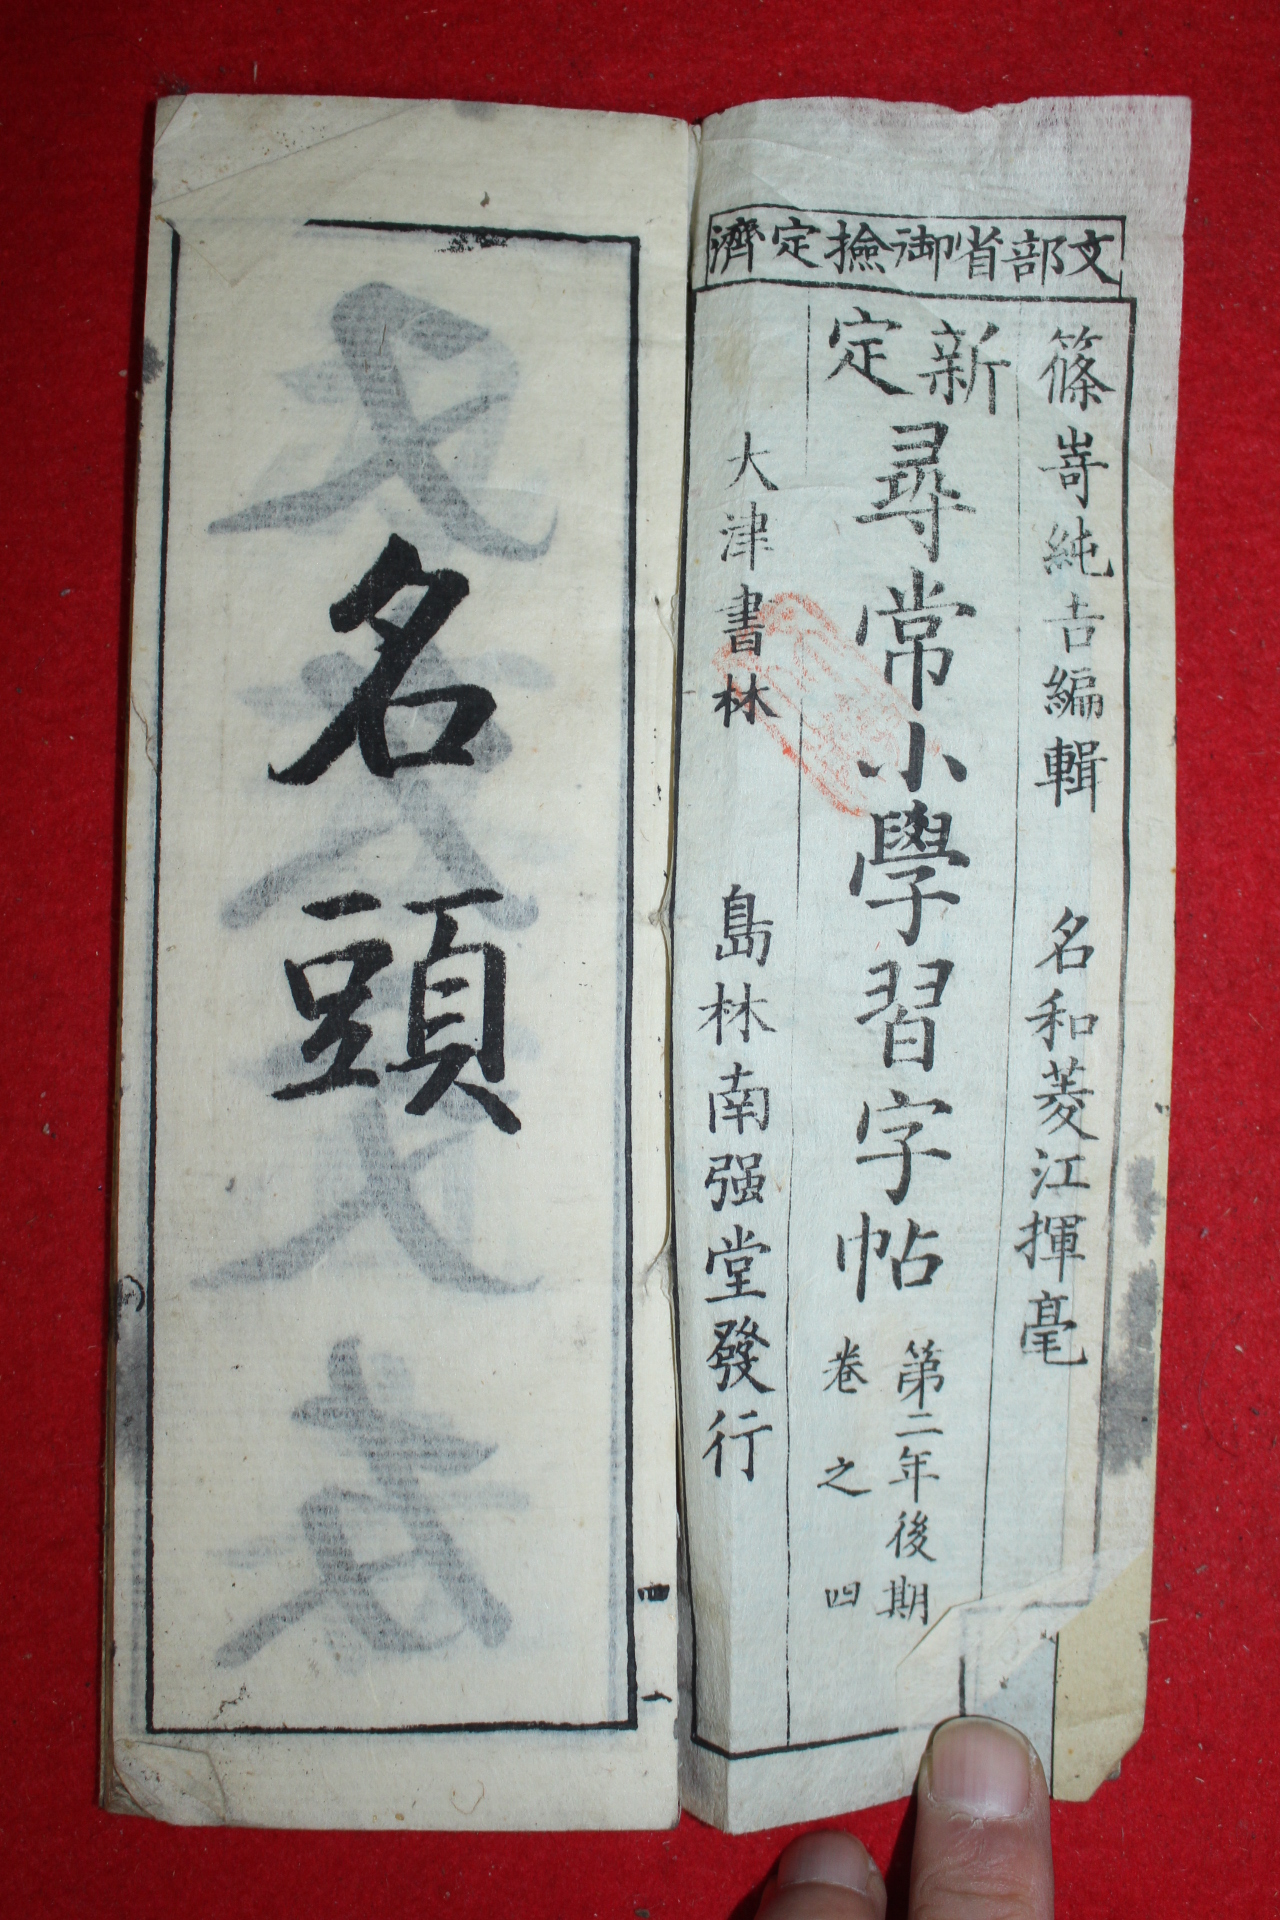 文部省御撿定濟
篠嵜純吉編輯 名和菱江揮毫
新定
尋常小學習字帖
第二年後期
卷之四
大津書林 島林南强堂發行
名頭
四
一